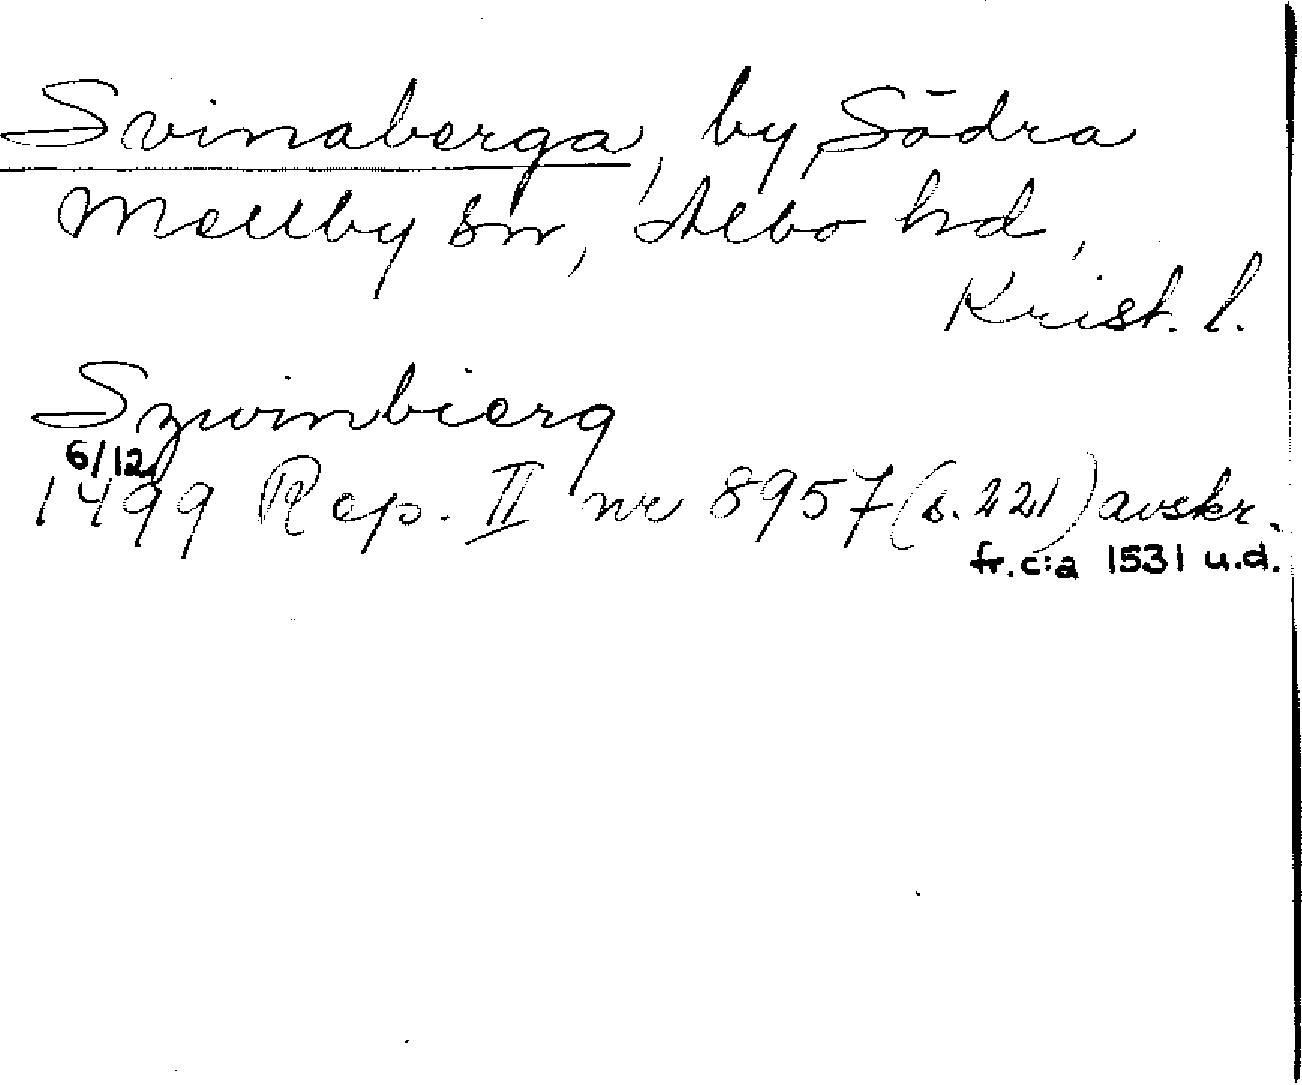 Svinaberga, by, Södra
Mellby sn, Albo hd,
Krist. l.
Szwinbierg
6/12
1499 Rep. II nr 8957 (s. 221) avskr.
fr. c:a 1531 u.d.